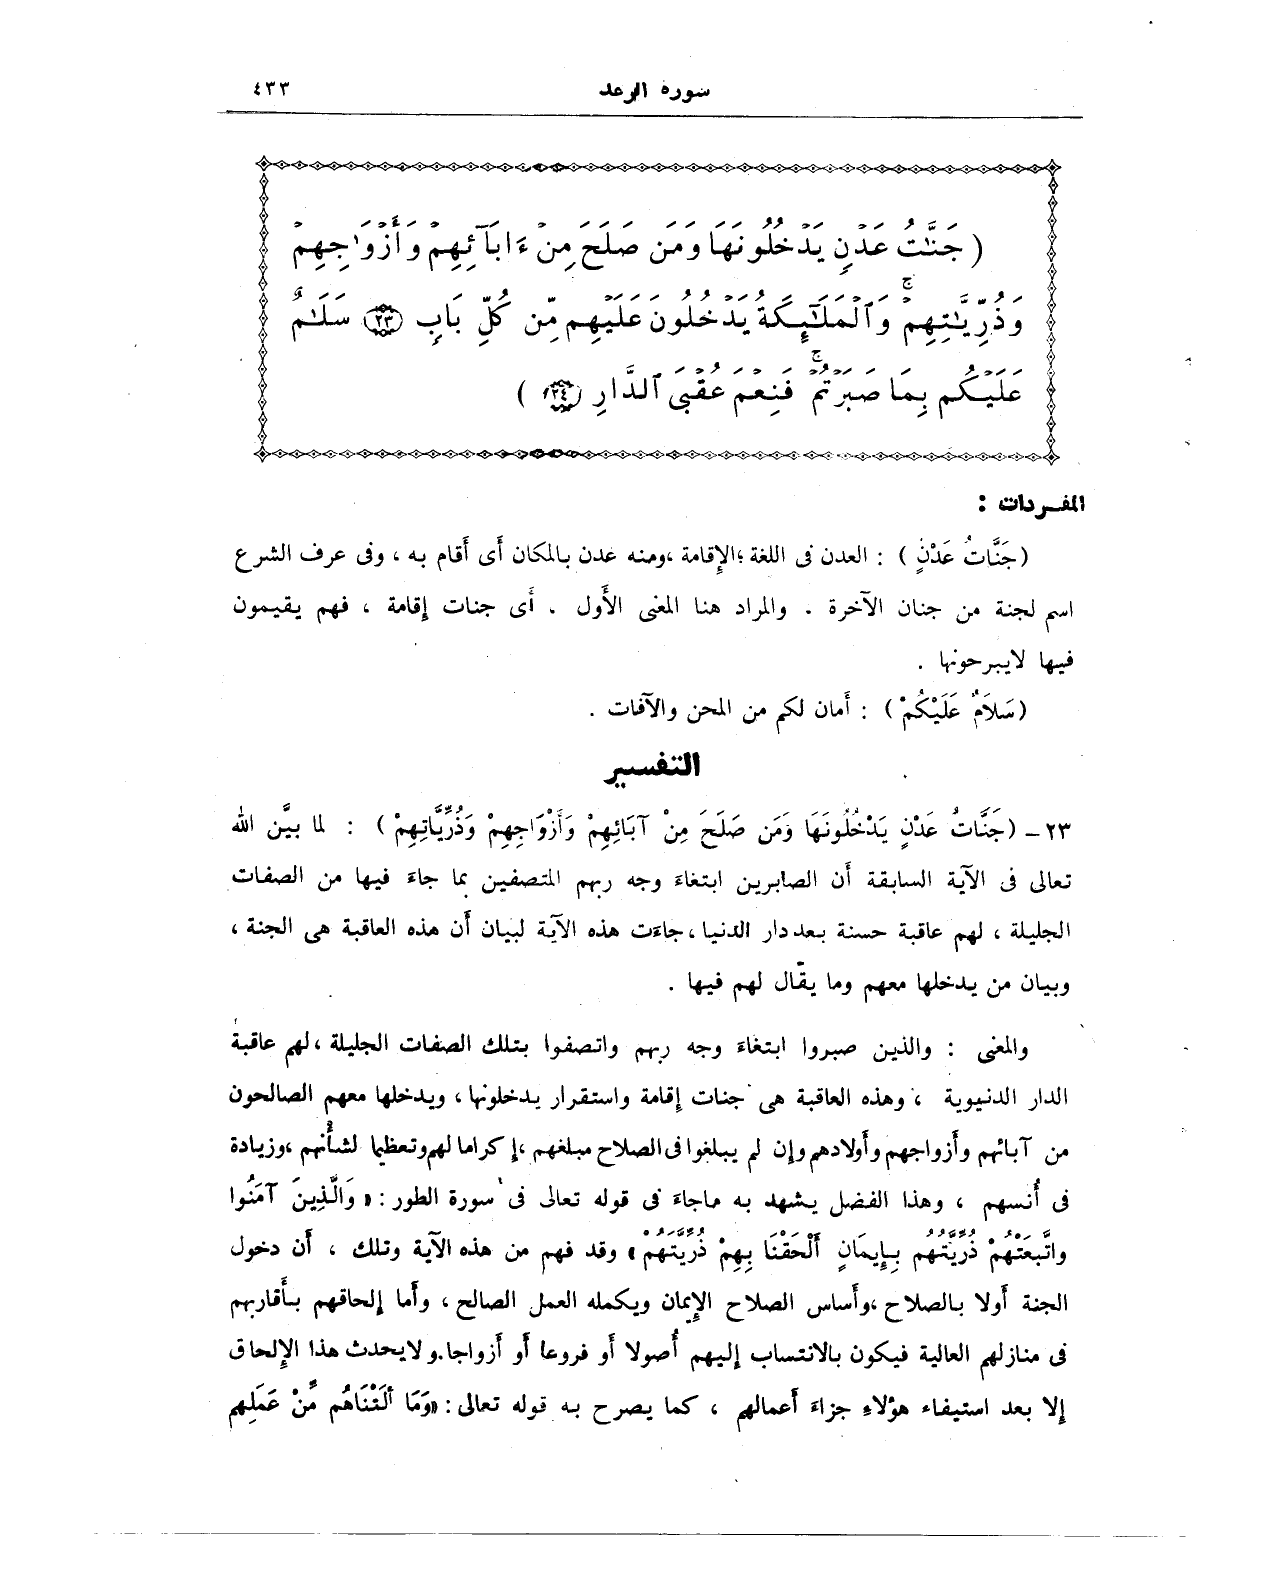 سورة الرعد ٤٣٣
( جَنَّٰتُ عَدْنٍ يَدْخُلُونَهَا وَمَن صَلَحَ مِنْ ءَابَآئِهِمْ وَأَزْوَٰجِهِمْ
وَذُرِّيَّٰتِهِمْ ۚ وَٱلْمَلَٰٓئِكَةُ يَدْخُلُونَ عَلَيْهِم مِّن كُلِّ بَابٍ (٢٣) سَلَٰمٌ
عَلَيْكُم بِمَا صَبَرْتُمْ ۚ فَنِعْمَ عُقْبَى ٱلدَّارِ (٢٤) )
المفـردات :
(جَنَّاتُ عَدْنٍ) : العدن فى اللغة ؛الإقامة ،ومنه عدن بالمكان أى أقام به ، وفى عرف الشرع
اسم لجنة من جنان الآخرة . والمراد هنا المعنى الأول . أى جنات إقامة ، فهم يقيمون
فيها لايبرحونها .
(سَلاَمٌ عَلَيْكُمْ) : أمان لكم من المحن والآفات .
التفسير
٢٣ – (جَنَّاتُ عَدْنٍ يَدْخُلُونَهَا وَمَن صَلَحَ مِنْ آبَائِهِمْ وَأَزْوَاجِهِمْ وَذُرِّيَّاتِهِمْ) : لما بيَّن الله
تعالى فى الآية السابقة أن الصابرين ابتغاءَ وجه ربهم المتصفين بما جاءَ فيها من الصفات
الجليلة ، لهم عاقبة حسنة بعد دار الدنيا ، جاءَت هذه الآية لبيان أن هذه العاقبة هى الجنة ،
وبيان من يدخلها معهم وما يقال لهم فيها .
والمعنى : والذين صبروا ابتغاءَ وجه ربهم واتصفوا بتلك الصفات الجليلة ،لهم عاقبة
الدار الدنيوية ، وهذه العاقبة هى جنات إقامة واستقرار يدخلونها ، ويدخلها معهم الصالحون
من آبائهم وأزواجهم وأولادهم وإن لم يبلغوا فى الصلاح مبلغهم ،إكراما لهم وتعظيما لشأنهم ،وزيادة
فى أُنسهم ، وهذا الفضل يشهد به ماجاءَ فى قوله تعالى فى سورة الطور : « وَالَّذِينَ آمَنُوا
واتَّبعَتْهُمْ ذُرِّيَّتُهُم بِإِيمَانٍ أَلْحَقْنَا بِهِمْ ذُرِّيَّتَهُمْ » وقد فهم من هذه الآية وتلك ، أن دخول
الجنة أولا بالصلاح ،وأساس الصلاح الإيمان ويكمله العمل الصالح ، وأما إلحاقهم بأقاربهم
فى منازلهم العالية فيكون بالانتساب إليهم أُصولا أو فروعا أو أزواجا.ولايحدث هذا الإلحاق
إلا بعد استيفاء هؤلاءِ جزاءَ أعمالهم ، كما يصرح به قوله تعالى : «وَمَا أَلَتْنَاهُم مِّنْ عَمَلِهِم